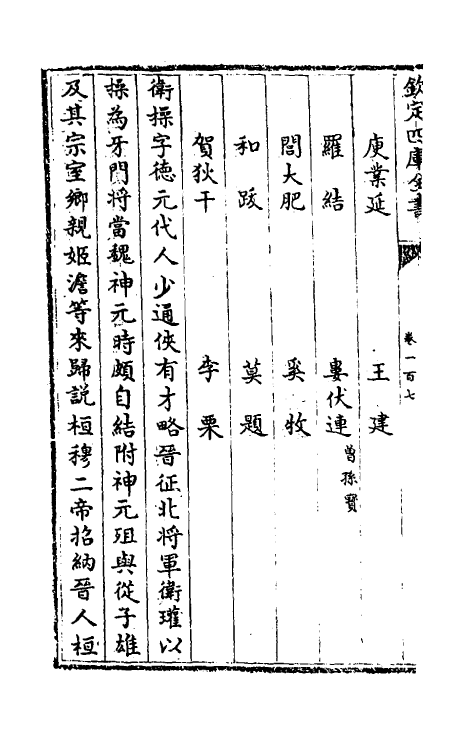 欽定四庫全書
卷一百七
庾業延 王建
羅結 婁伏連 曾孫寶
閭大肥 奚牧
和跋 莫題
賀狄干 李栗
衛操字德元代人少通俠有才略晉征北將軍衛瓘以
操為牙門將當魏神元時頗自結附神元殂與從子雄
及其宗室鄉親姬澹等來歸説桓穆二帝招納晉人桓